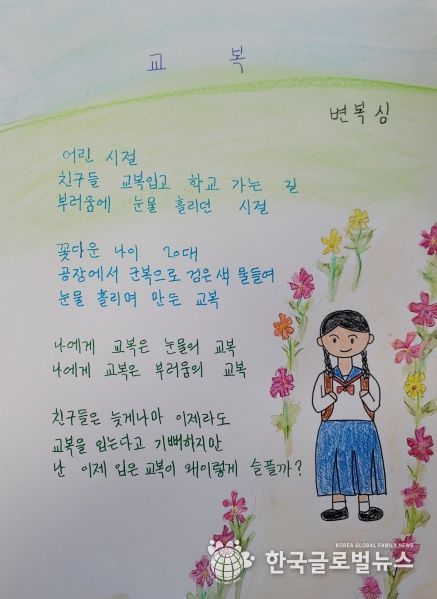 교 복
변복심
어린 시절
친구들 교복입고 학교 가는 길
부러움에 눈물 흘리던 시절
꽃다운 나이 20대
공장에서 군복으로 검은색 물들여
눈물 흘리며 만든 교복
나에게 교복은 눈물의 교복
나에게 교복은 부러움의 교복
친구들은 늦게나마 이제라도
교복을 입는다고 기뻐하지만
난 이제 입은 교복이 왜이렇게 슬플까?
KOREA GLOBAL FAMILY NEWS
한국글로벌뉴스